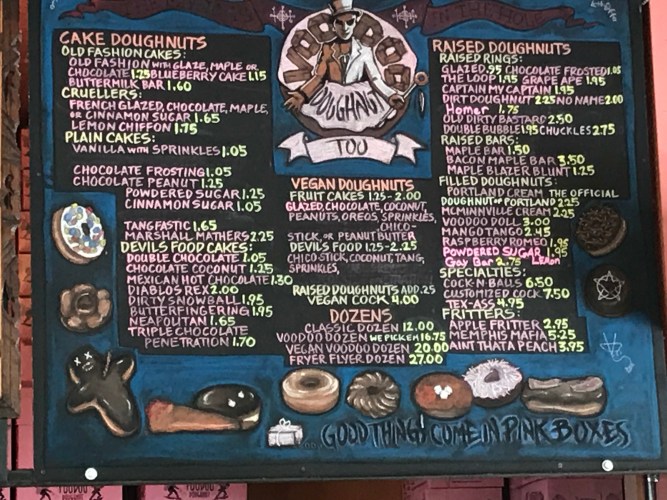 VOODOO
DOUGHNUT
TOO
CAKE DOUGHNUTS
OLD FASHION CAKES:
OLD FASHION WITH GLAZE, MAPLE OR
CHOCOLATE 1.25 BLUEBERRY CAKE 1.15
BUTTERMILK BAR 1.60
CRUELLERS:
FRENCH GLAZED, CHOCOLATE, MAPLE,
OR CINNAMON SUGAR 1.65
LEMON CHIFFON 1.75
PLAIN CAKES:
VANILLA WITH SPRINKLES 1.05
CHOCOLATE FROSTING 1.05
CHOCOLATE PEANUT 1.25
POWDERED SUGAR 1.25
CINNAMON SUGAR 1.05
TANGFASTIC 1.65
MARSHALL MATHERS 2.25
DEVILS FOOD CAKES:
DOUBLE CHOCOLATE 1.05
CHOCOLATE COCONUT 1.25
MEXICAN HOT CHOCOLATE 1.30
DIABLOS REX 2.00
DIRTY SNOWBALL 1.95
BUTTERFINGERING 1.95
NEAPOLITAN 1.65
TRIPLE CHOCOLATE
PENETRATION 1.70
VEGAN DOUGHNUTS
FRUIT CAKES 1.25-2.00
GLAZED, CHOCOLATE, COCONUT,
PEANUTS, OREOS, SPRINKLES,
CHICO-
STICK, OR PEANUT BUTTER
DEVILS FOOD 1.25-2.25
CHICO STICK, COCONUT, TANG,
SPRINKLES,
RAISED DOUGHNUTS ADD .25
VEGAN COCK 4.00
DOZENS
CLASSIC DOZEN 12.00
VOODOO DOZEN WE PICK EM 16.75
VEGAN VOODOO DOZEN 20.00
FRYER FLYER DOZEN 27.00
RAISED DOUGHNUTS
RAISED RINGS:
GLAZED .95 CHOCOLATE FROSTED 1.05
THE LOOP 1.95 GRAPE APE 1.95
CAPTAIN MY CAPTAIN 1.95
DIRT DOUGHNUT 2.25 NO NAME 2.00
Homer 1.75
OLD DIRTY BASTARD 2.50
DOUBLE BUBBLE 1.95 CHUCKLES 2.75
RAISED BARS:
MAPLE BAR 1.50
BACON MAPLE BAR 3.50
MAPLE BLAZER BLUNT 1.25
FILLED DOUGHNUTS:
PORTLAND CREAM THE OFFICIAL
DOUGHNUT OF PORTLAND 2.25
MCMINNVILLE CREAM 2.25
VOODOO DOLL 3.00
MANGO TANGO 2.45
RASPBERRY ROMEO 1.95
POWDERED SUGAR 1.95
Gay Bar 2.75 LEMON
SPECIALTIES:
COCK-N-BALLS 6.50
CUSTOMIZED COCK 7.50
TEX-ASS 4.95
FRITTERS:
APPLE FRITTER 2.95
MEMPHIS MAFIA 5.25
AINT THAT A PEACH 3.95
GOOD THINGS COME IN PINK BOXES